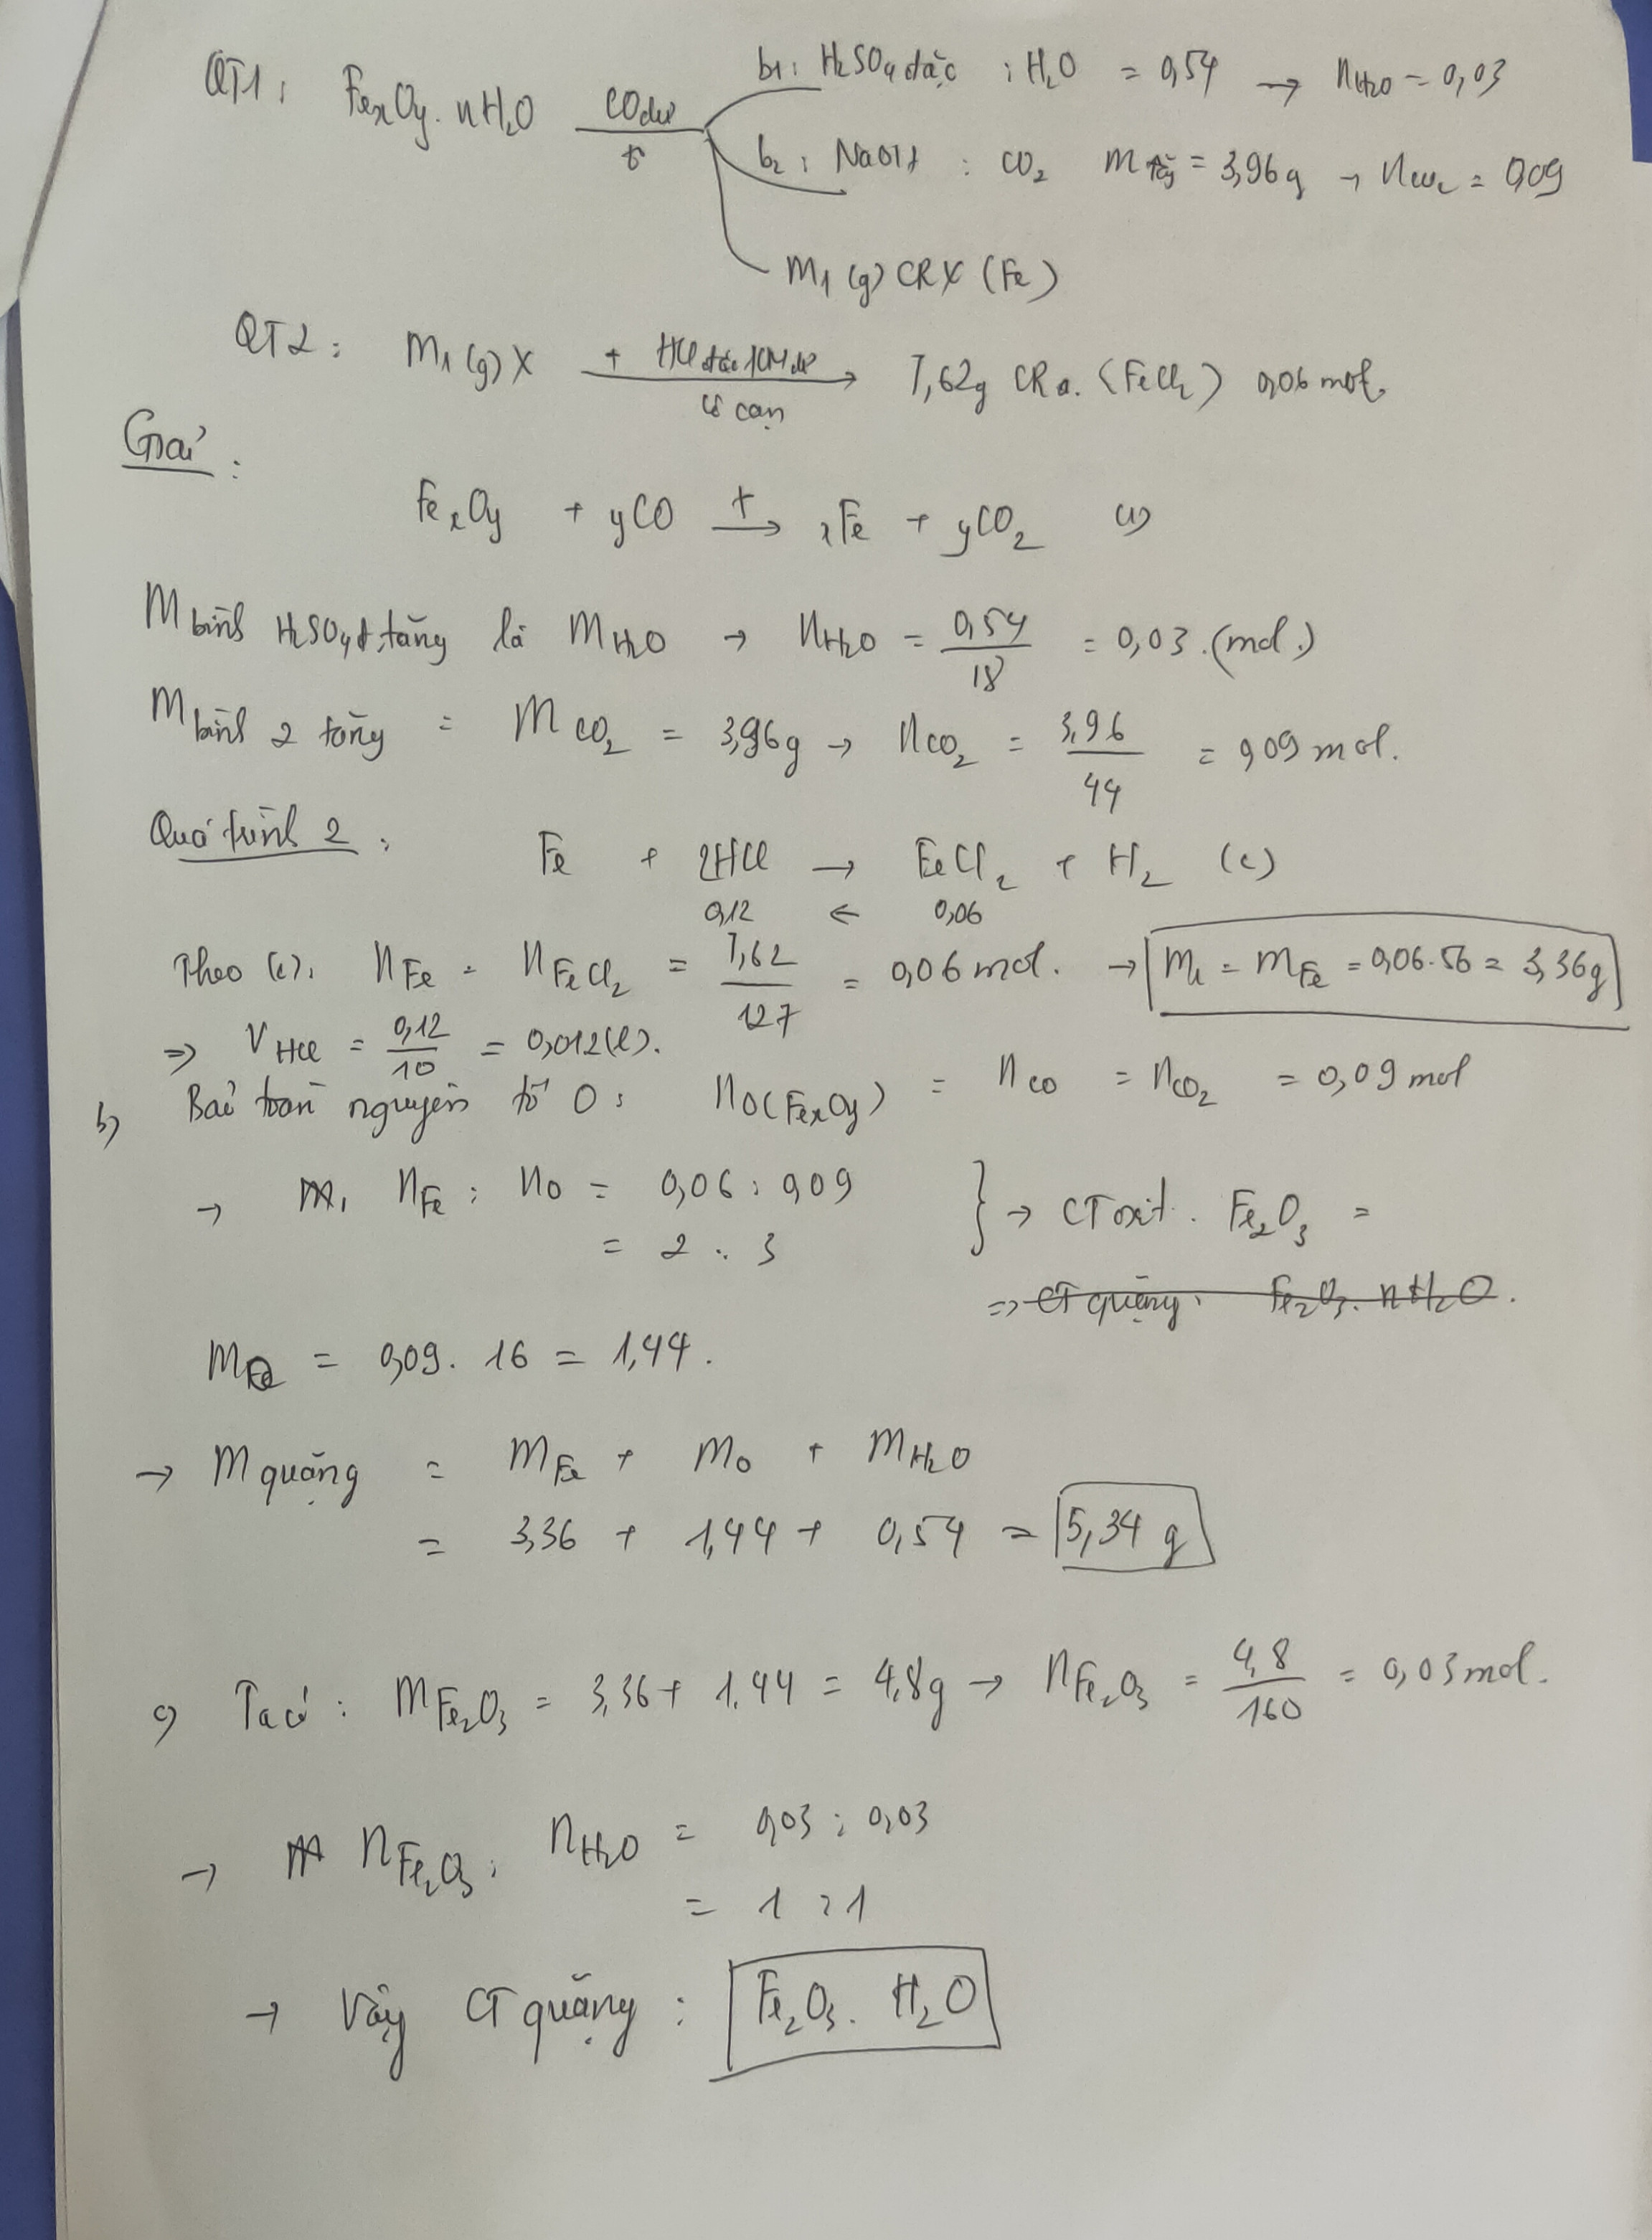 QT1: FexOy.nH2O CO dư t° b1: H2SO4 đặc : H2O = 0,54 → nH2O = 0,03
b2: NaOH : CO2 m tăng = 3,96g → nCO2 = 0,09
m1 (g) CR X (Fe)
QT2: m1 (g) X + HCl đặc 10M dư → cô cạn 7,62g CR a. (FeCl2) 0,06 mol.
Giải:
FexOy + yCO t→ xFe + yCO2 (1)
m bình H2SO4 đ tăng là mH2O → nH2O = 0,54/18 = 0,03.(mol.)
m bình 2 tăng = mCO2 = 3,96g → nCO2 = 3,96/44 = 0,09 mol.
Quá trình 2:
Fe + 2HCl → FeCl2 + H2 (2)
0,12 ← 0,06
Theo (2): nFe = nFeCl2 = 7,62/127 = 0,06 mol. → m1 = mFe = 0,06.56 = 3,36g
=> VHCl = 0,12/10 = 0,012(l).
b) Bảo toàn nguyên tố O: nO(FexOy) = nCO = nCO2 = 0,09 mol
→ nFe : nO = 0,06 : 0,09
= 2 : 3
} → CT oxit. Fe2O3 =
=> CT quặng: Fe2O3.nH2O.
mO = 0,09. 16 = 1,44.
→ m quặng = mFe + mO + mH2O
= 3,36 + 1,44 + 0,54 = 5,34 g
c) Ta có: mFe2O3 = 3,36 + 1,44 = 4,8g → nFe2O3 = 4,8/160 = 0,03 mol.
→ nFe2O3 : nH2O = 0,03 : 0,03
= 1 : 1
→ Vậy CT quặng: Fe2O3. H2O